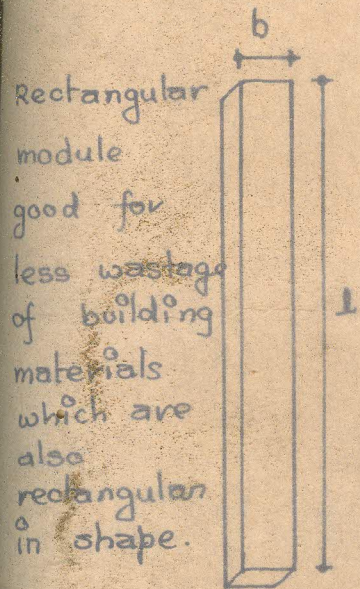 b
Rectangular
module
good for
less wastage
of building
materials
which are
also
rectangular
in shape.
l